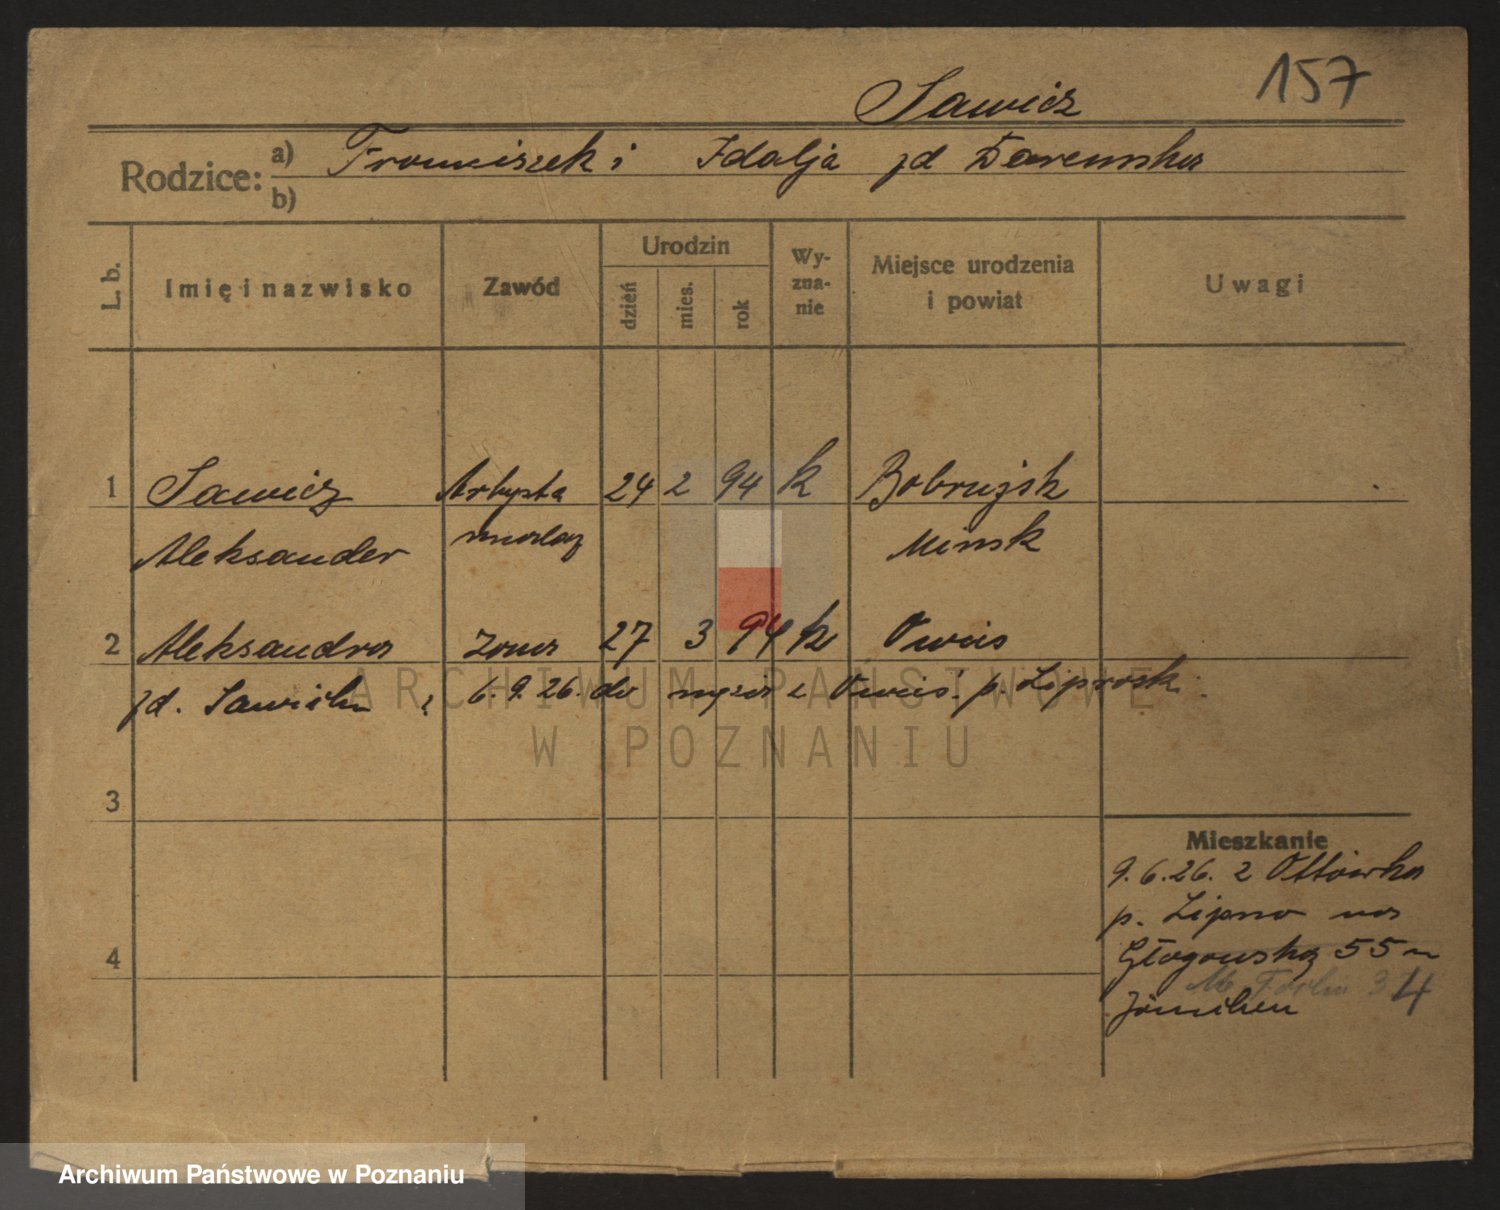 157
Sawicz
Rodzice: a) Franciszek i Idalja zd Daremska
b)
L. b. Imię i nazwisko Zawód Urodzin dzień mies. rok Wyznanie Miejsce urodzenia i powiat Uwagi
1 Sawicz Artysta 24 2 94 k Bobrujsk
Aleksander Mińsk
2 Aleksandra żona 27 3 94 k
zd. 6.9.26. do męża z p.
3
Mieszkanie
9.6.26. z Ottówka
p. Lipno na
4 Głogowska 55
4
ARCHIWUM PAŃSTWOWE
W POZNANIU
Archiwum Państwowe w Poznaniu